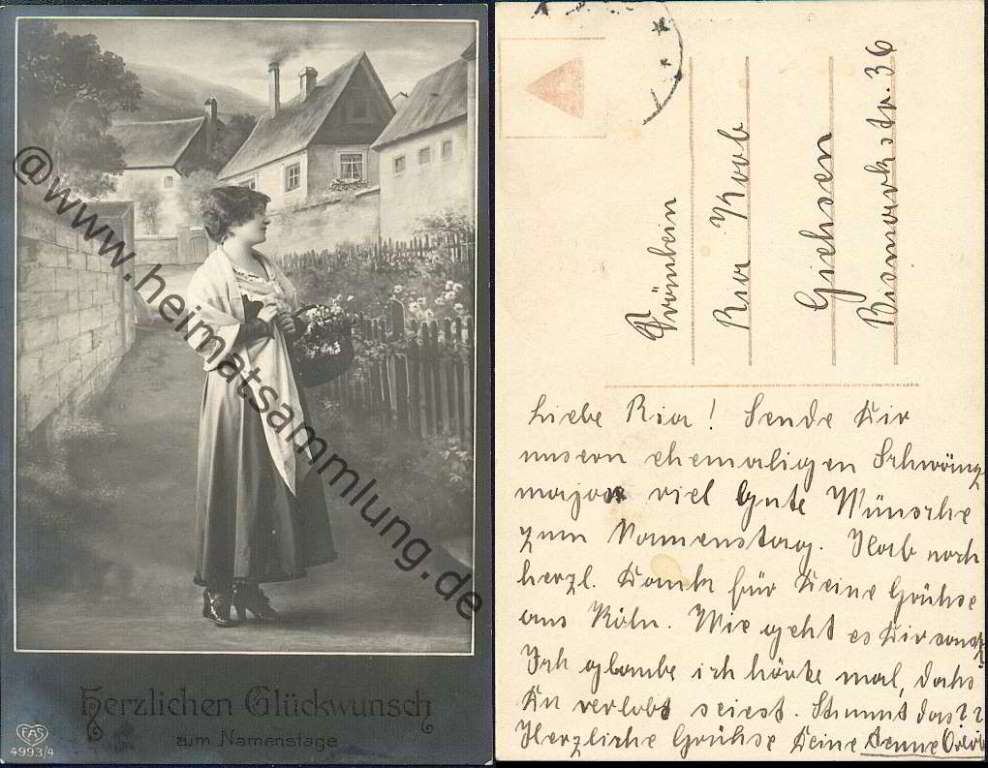 @www.heimatsammlung.de
Herzlichen Glückwunsch
zum Namenstage
EAS
4993/4
Fräulein
Ria Koob
Giehsen
Bismarckstr. 36
Liebe Ria! Sende Dir
unsern ehemaligen
viel Gute Wünsche
zum Namenstag. Hab noch
herzl. Dank für Deine Grühse
aus Köln. Wie geht es Dir sonst
Ich glaube ich hörte mal, dahs
Du verlobt seiest. Stimmt das??
Herzliche Grühse Deine